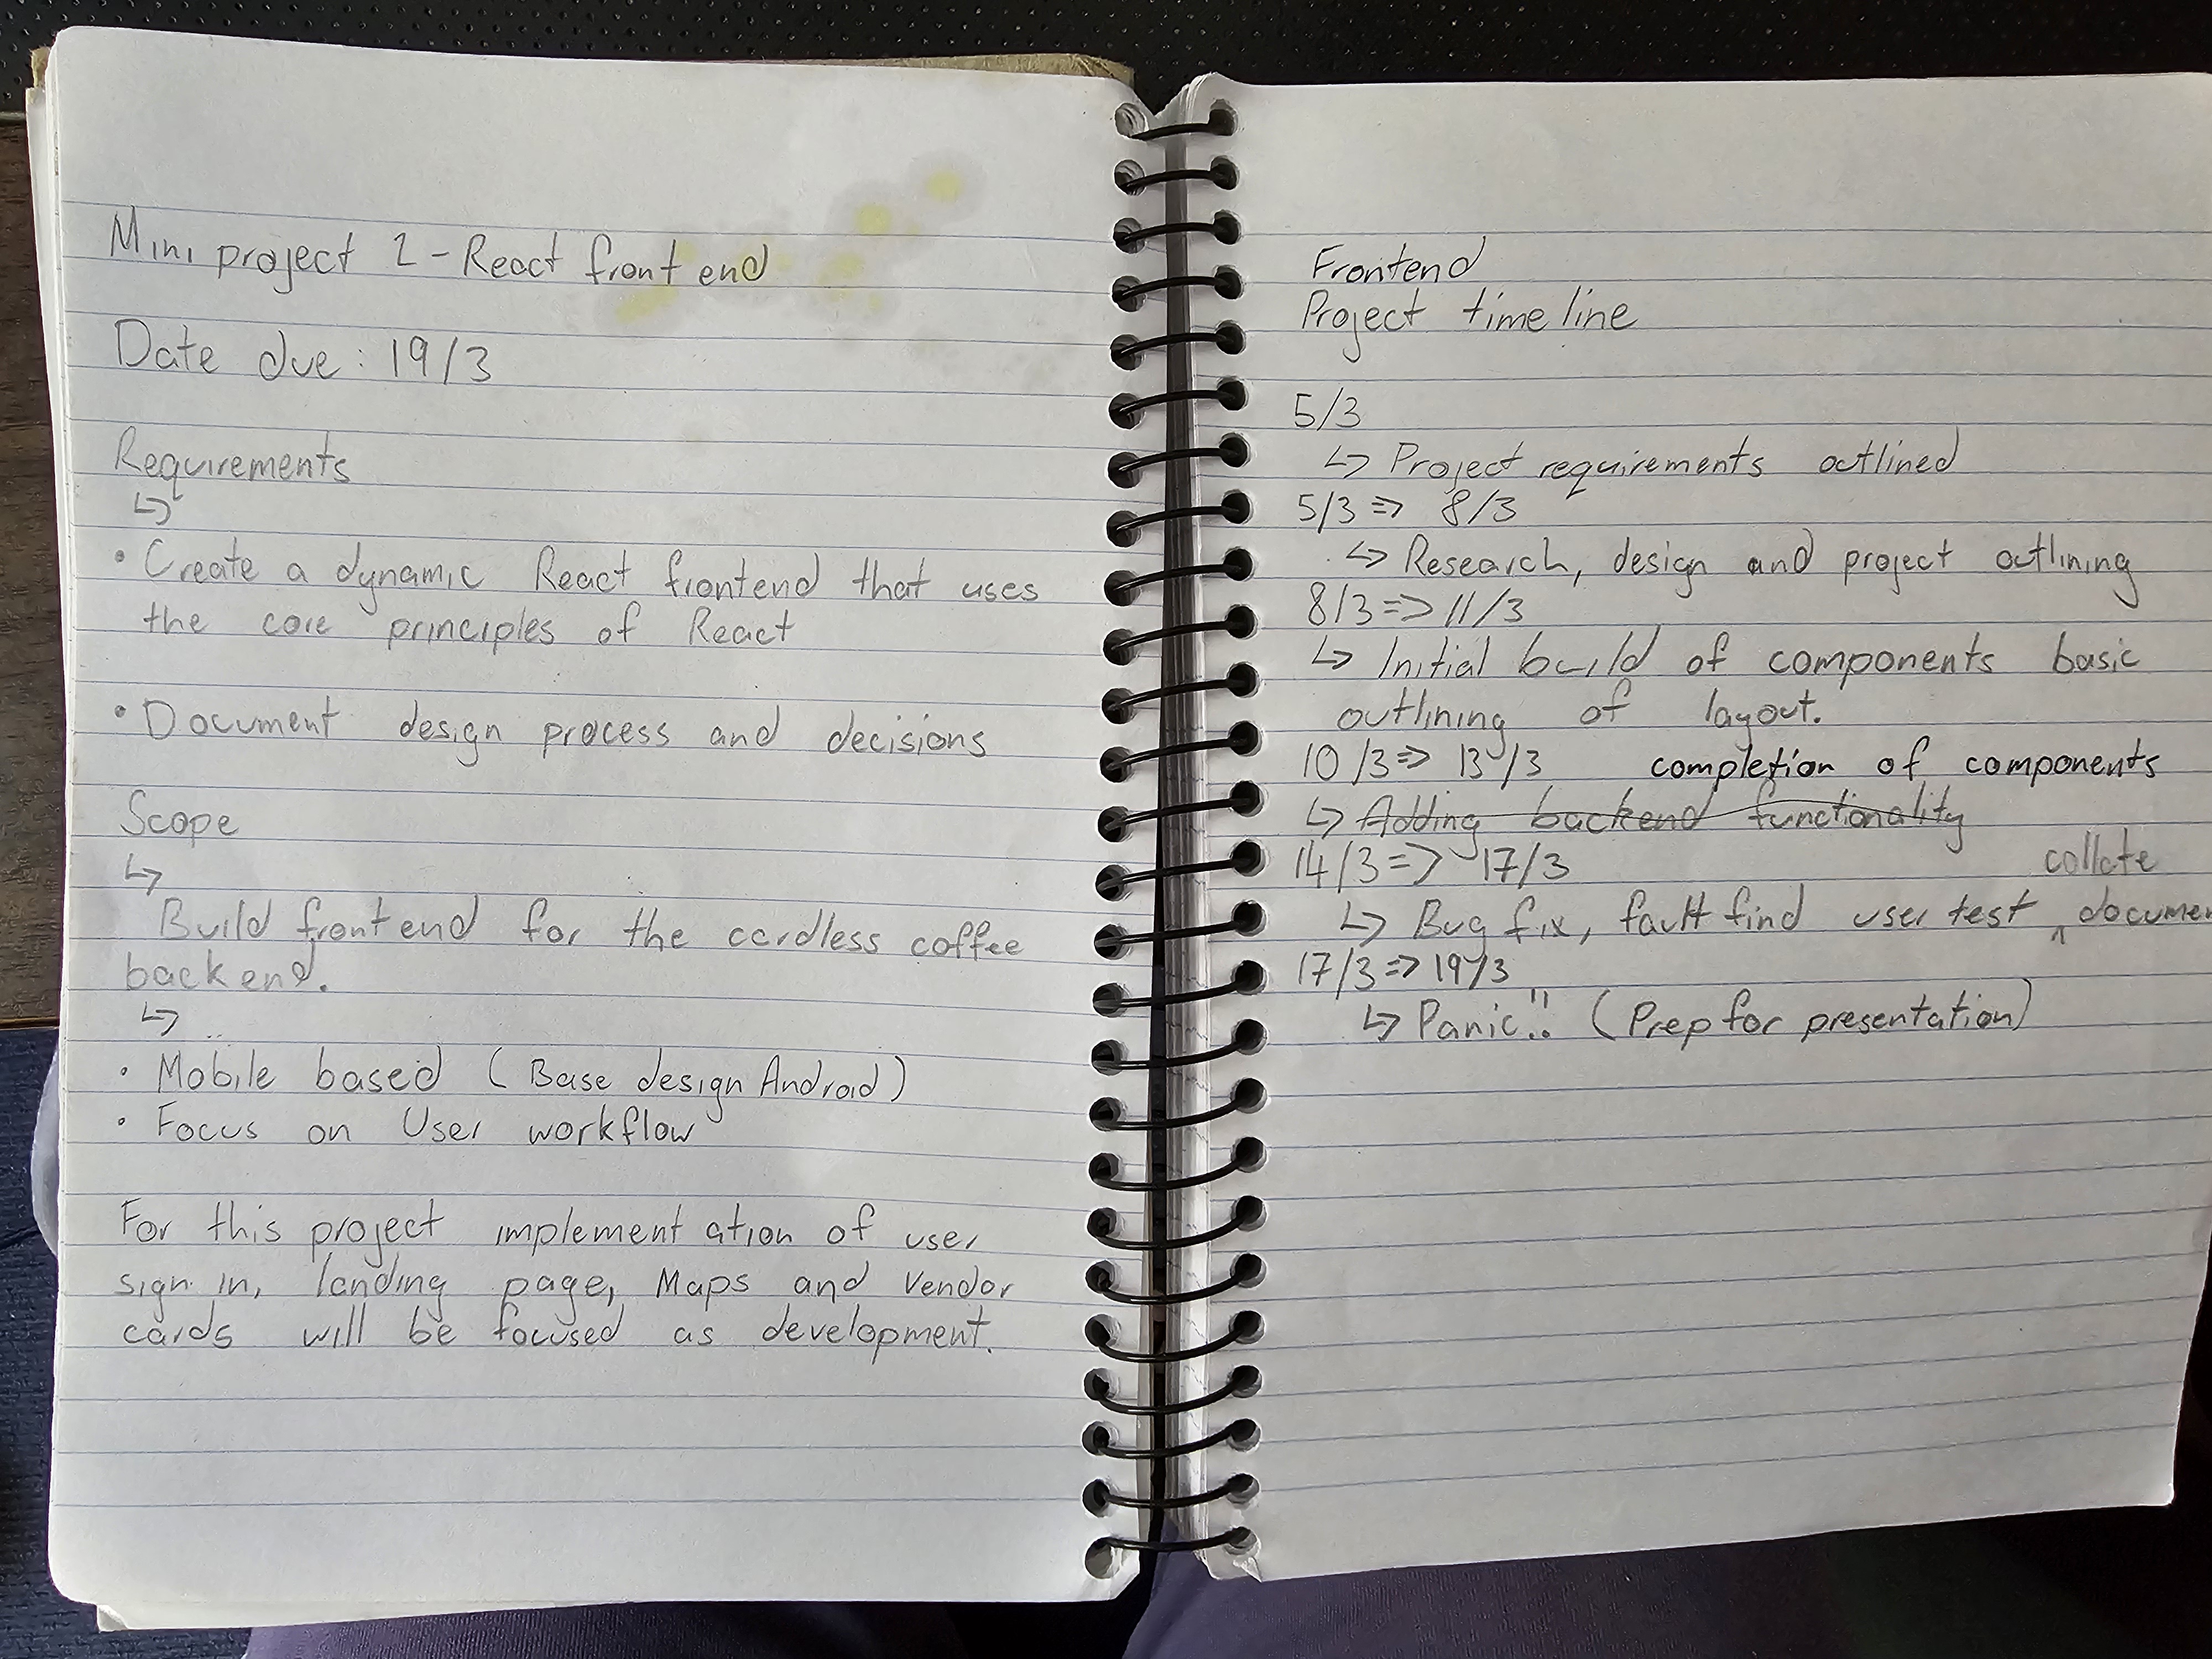 Mini project 2 - React front end
Date due: 19/3
Requirements
↳
• Create a dynamic React frontend that uses
the core principles of React
• Document design process and decisions
Scope
↳
Build front end for the cardless coffee
backend.
↳
• Mobile based (Base design Android)
• Focus on User workflow
For this project implementation of user
sign in, landing page, Maps and Vendor
cards will be focused as development.
Frontend
Project timeline
5/3
↳ Project requirements outlined
5/3 => 8/3
↳ Research, design and project outlining
8/3 => 11/3
↳ Initial build of components basic
outlining of layout.
10/3 => 13/3 completion of components
↳ Adding backend functionality
14/3 => 17/3
collate
↳ Bug fix, fault find user test ^ documen
17/3 => 19/3
↳ Panic!! (Prep for presentation)